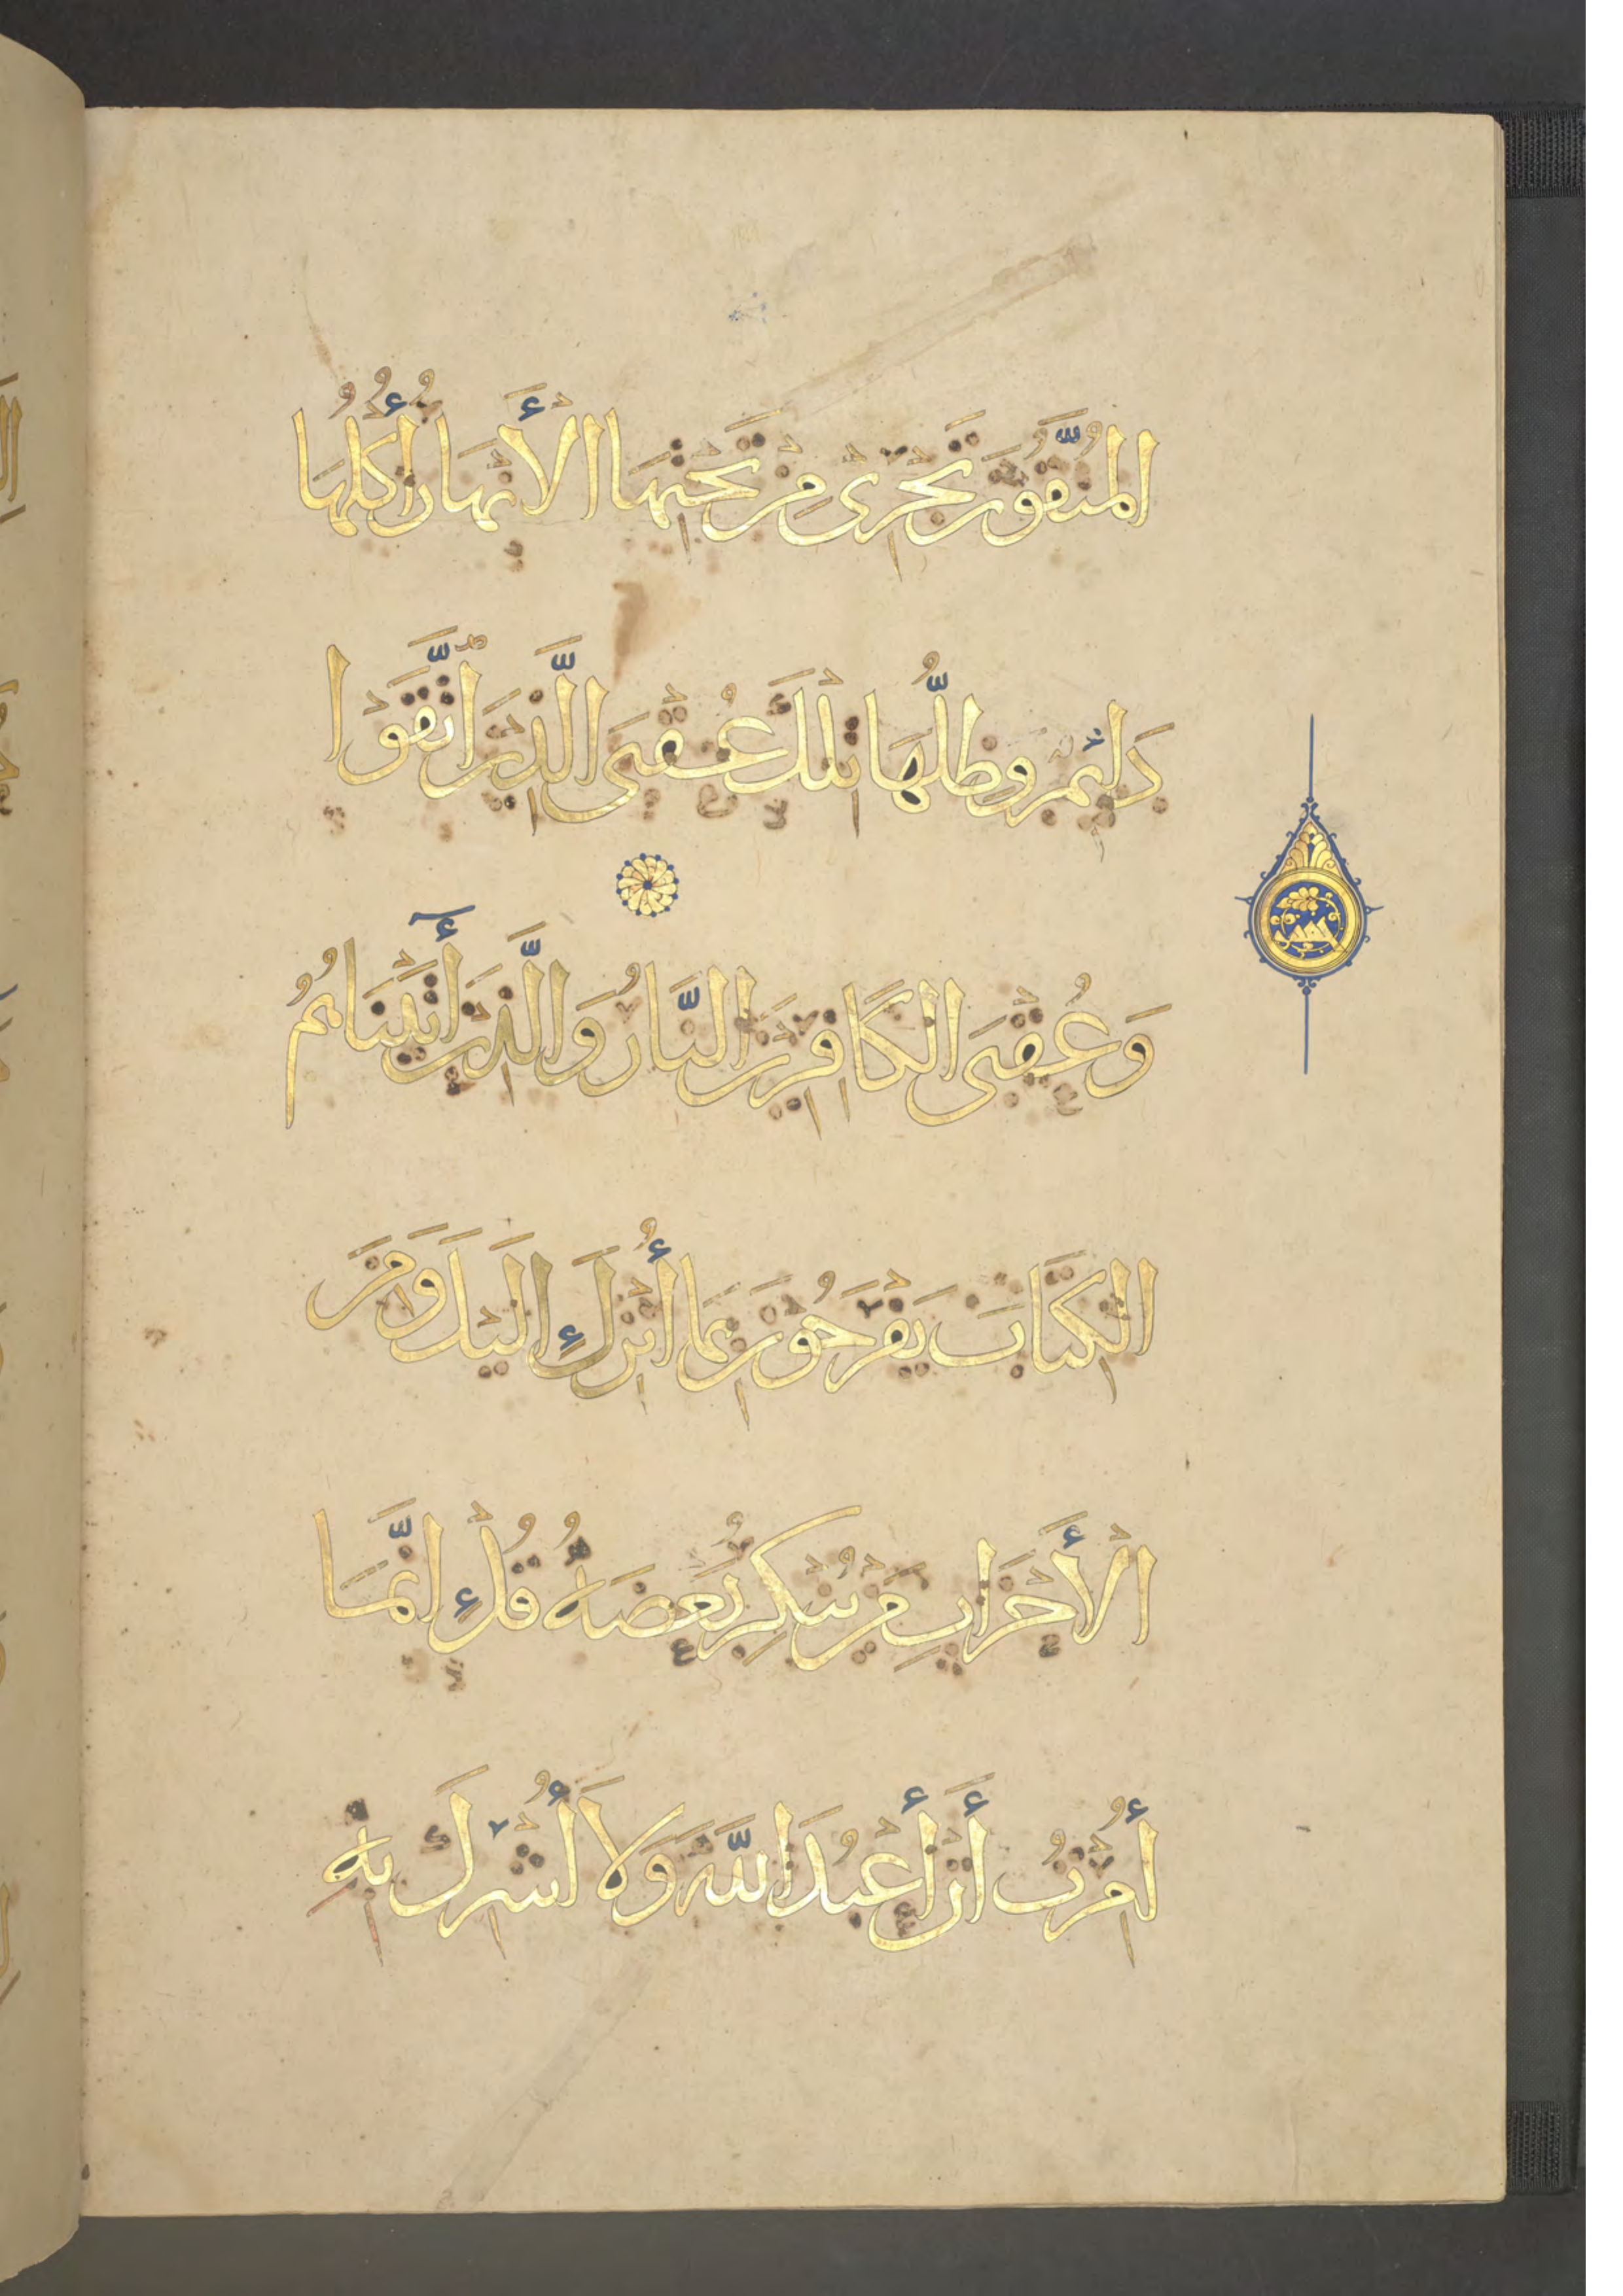 الْمُتَّقُونَ تَجْرِي مِنْ تَحْتِهَا الْأَنْهَارُ أُكُلُهَا
دَائِمٌ وَظِلُّهَا تِلْكَ عُقْبَى الَّذِينَ اتَّقَوْا
وَعُقْبَى الْكَافِرِينَ النَّارُ وَالَّذِينَ آتَيْنَاهُمُ
الْكِتَابَ يَفْرَحُونَ بِمَا أُنْزِلَ إِلَيْكَ وَمِنَ
الْأَحْزَابِ مَنْ يُنْكِرُ بَعْضَهُ قُلْ إِنَّمَا
أُمِرْتُ أَنْ أَعْبُدَ اللَّهَ وَلَا أُشْرِكَ بِهِ